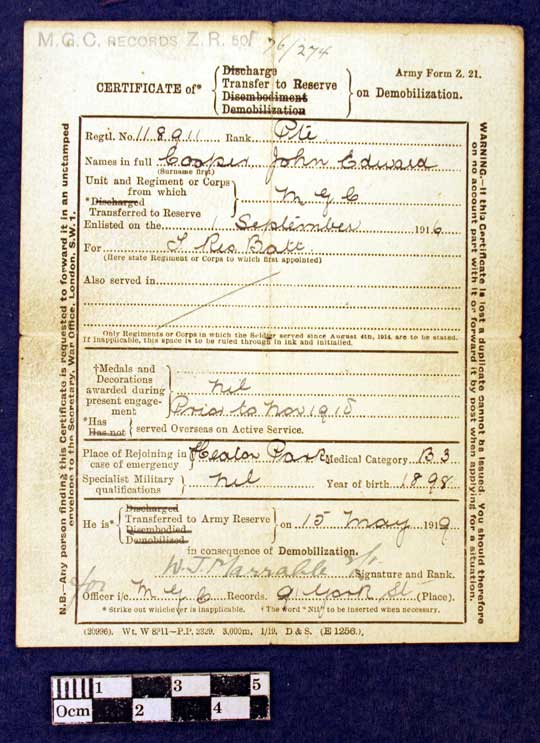 M.G.C. RECORDS Z.R. 501
76/274
Army Form Z. 21.
CERTIFICATE of* { Discharge Transfer to Reserve Disembodiment Demobilization } on Demobilization.
Regtl. No. 118911 Rank Pte
Names in full Cooper John Edward
(Surname first)
Unit and Regiment or Corps
from which
*Discharged
Transferred to Reserve
M G C
Enlisted on the 1 September 1916
For Res Batt
(Here state Regiment or Corps to which first appointed)
Also served in
Only Regiments or Corps in which the Soldier served since August 4th, 1914, are to be stated.
If inapplicable, this space is to be ruled through in ink and initialled.
†Medals and
Decorations
awarded during
present engage-
ment
nil
Prior to Nov 1918
*Has
Has not
served Overseas on Active Service.
Place of Rejoining in
case of emergency
Heaton Park
Medical Category B 3
Specialist Military
qualifications
nil
Year of birth 1898
He is* { Discharged Transferred to Army Reserve Disembodied Demobilized } on 15 May 1919
in consequence of Demobilization.
W. J. Marrable
Signature and Rank.
for
Officer i/c M G C Records. 9 York St (Place).
* Strike out whichever is inapplicable. † The word "Nil" to be inserted when necessary.
(20996). Wt. W 8211—P.P. 2329. 3,000m. 1/19. D & S. (E 1256.).
N.B.—Any person finding this Certificate is requested to forward it in an unstamped
envelope to the Secretary, War Office, London, S.W. 1.
WARNING.—If this Certificate is lost a duplicate cannot be issued. You should therefore
on no account part with it or forward it by post when applying for a situation.
1 3 5
0cm 2 4